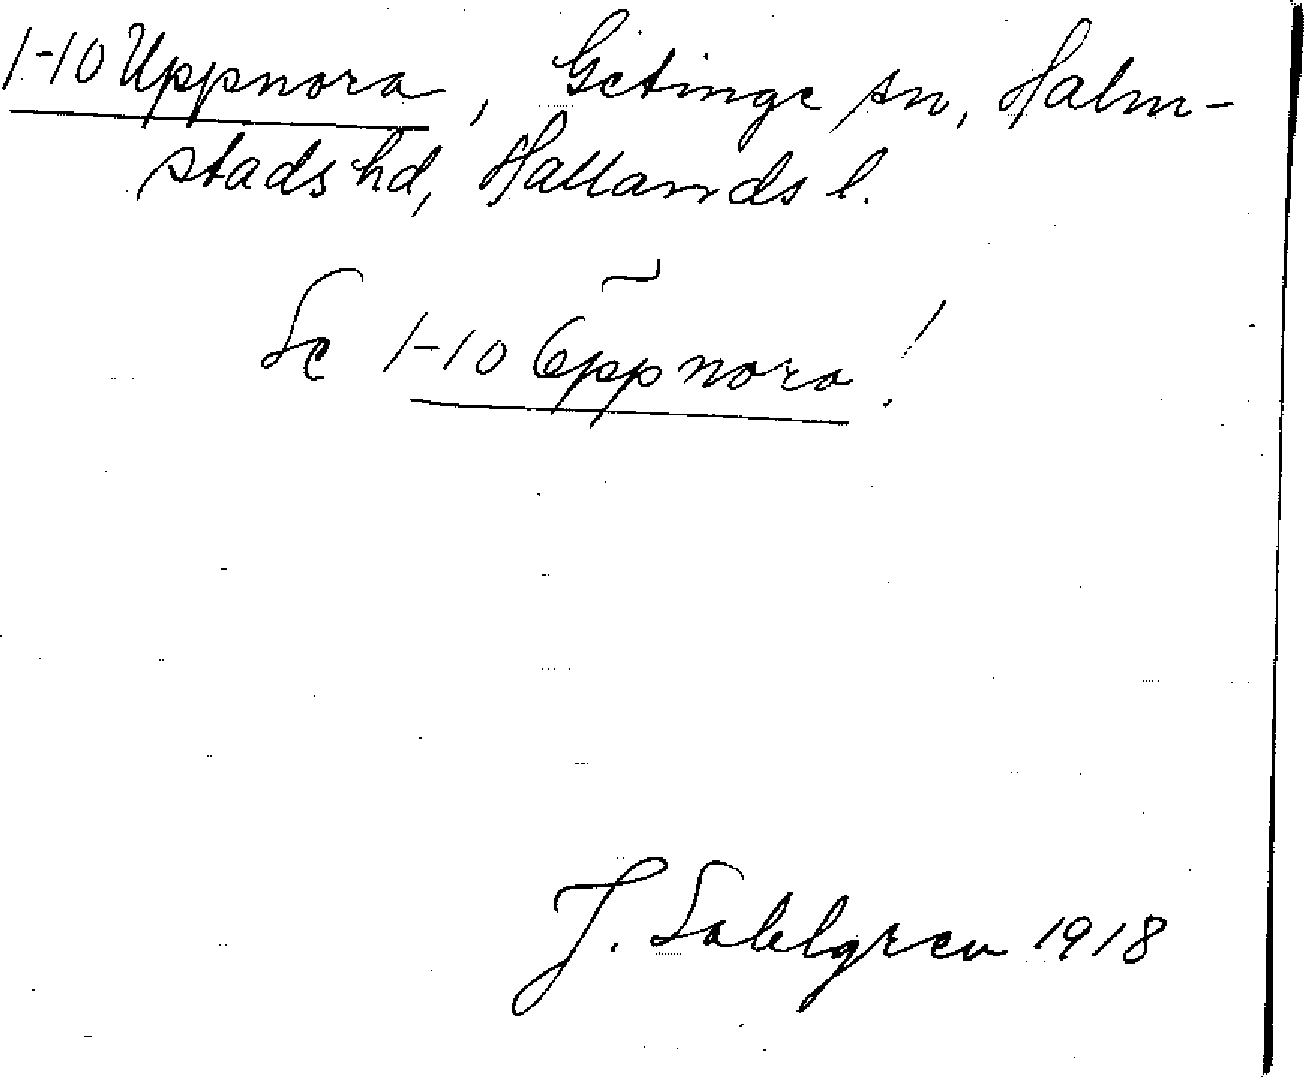 1-10 Uppnora, Getinge sn, Halm-
stads hd, Hallands l.
~
Se 1-10 Öppnora!
J. Sahlgren 1918